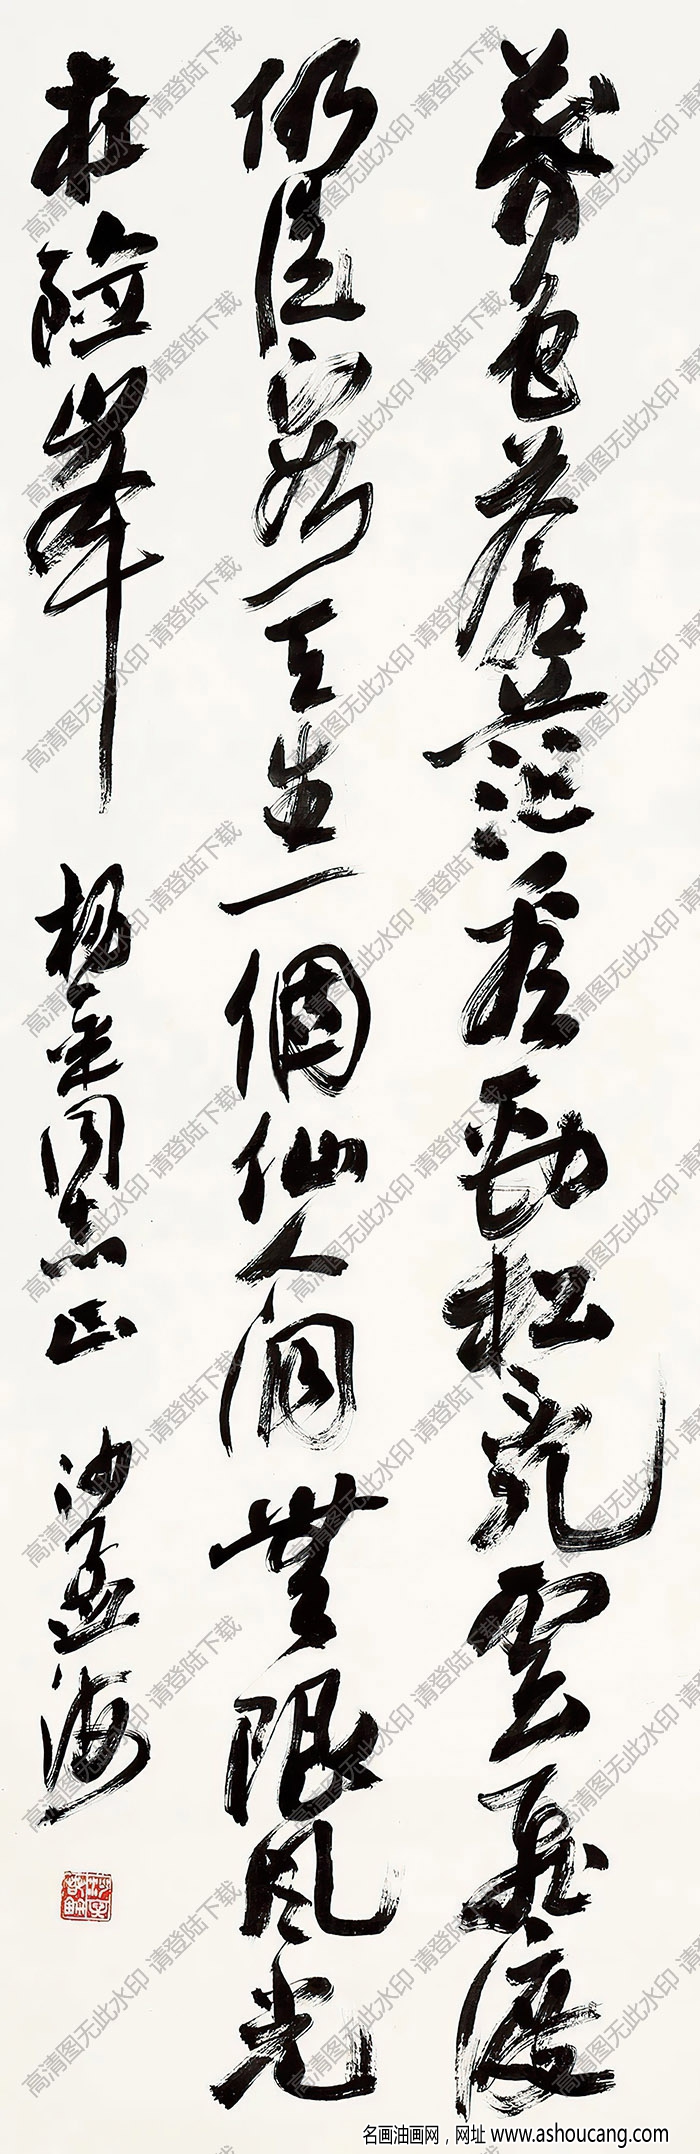 暮色蒼茫看勁松亂雲飛渡
仍從容天生一個仙人洞無限風光
在險峯
楊 同志正
沙孟海
高清图无此水印 请登陆下载
名画油画网，网址 www.ashoucang.com